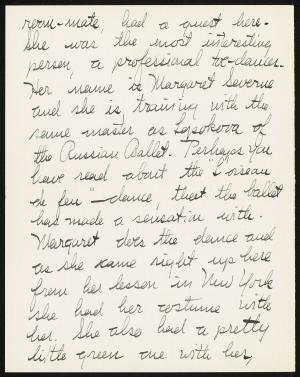 room-mate, had a guest here.
She was the most interesting
person, a professional toe-dancer.
Her name is Margaret Severne
and she is training with the
same master as Lopokova of
the Russian Ballet. Perhaps you
have read about the "L'oiseau
de feu" – dance, that the ballet
has made a sensation with.
Margaret does the dance and
as she came right up here
from her lesson in New York
she had her costume with
her. She also had a pretty
little green one with her,